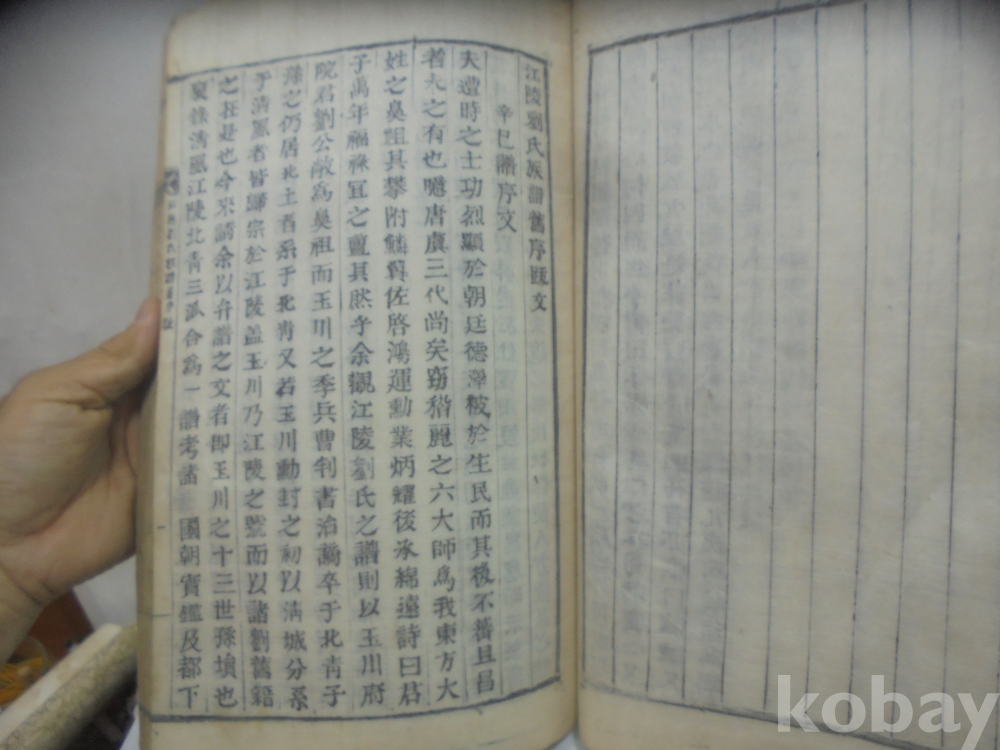 江陵劉氏族譜舊序跋文
辛巳譜序文
夫遭時之士功烈顯於朝廷德澤被於生民而其後不蕃且昌
者未之有也噫唐虞三代尚矣窃稽麗之六大師為我東方大
姓之奐祖其攀附鱗翼佐啓鴻運勳業炳耀後承綿遠詩曰君
子萬年福祿宜之亶其然乎余觀江陵劉氏之譜則以玉川府
院君劉公敞為奐祖而玉川之季兵曹判書治謫卒于北靑子
孫之仍居北土者系于北靑又若玉川勳封之初以淸城分系
于淸風者皆歸宗於江陵盖玉川乃江陵之鑒而以諸劉舊籍
之在是也今來請余以弁譜之文者即玉川之十三世孫塤也
淸風江陵北靑三派合為一譜考諸國朝寶鑑及都下
kobay